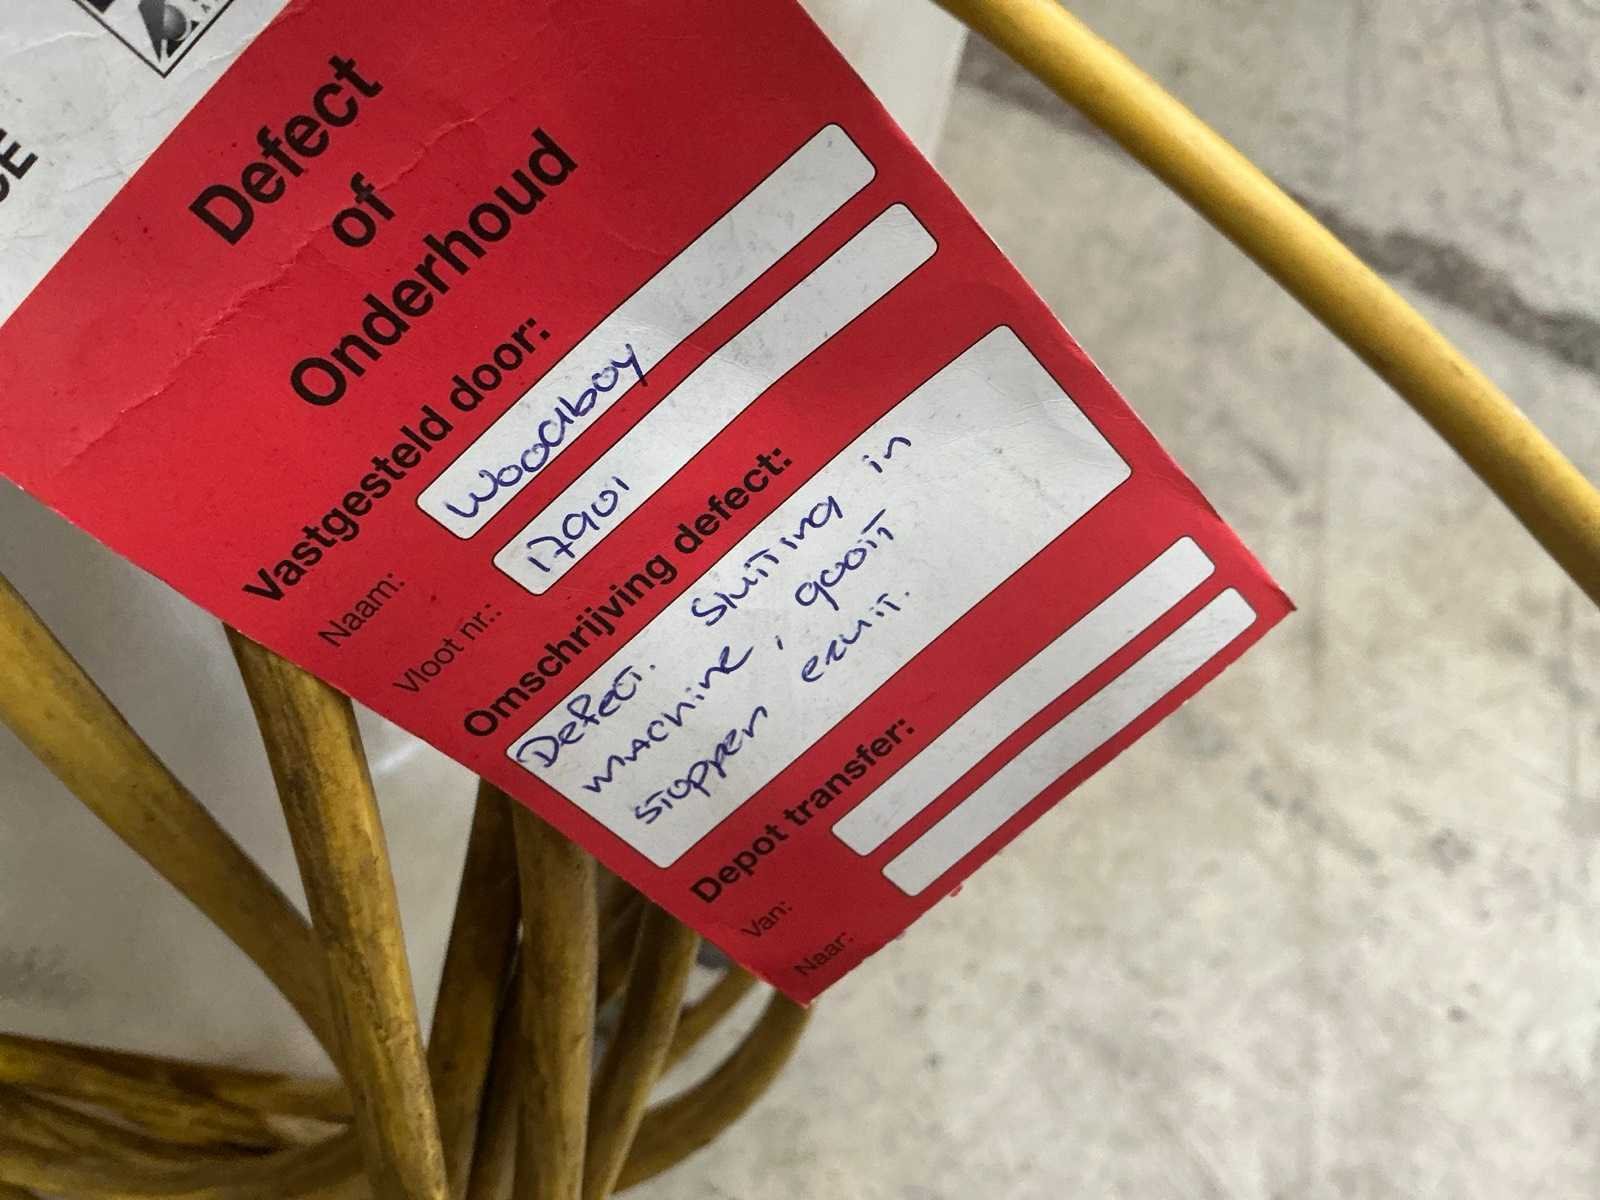 CE
Defect
of
Onderhoud
Vastgesteld door:
Naam: Woodboy
Vloot nr.: 17901
Omschrijving defect:
Defect. Sluiting in
machine, gooit
stoppen eruit.
Depot transfer:
Van:
Naar: